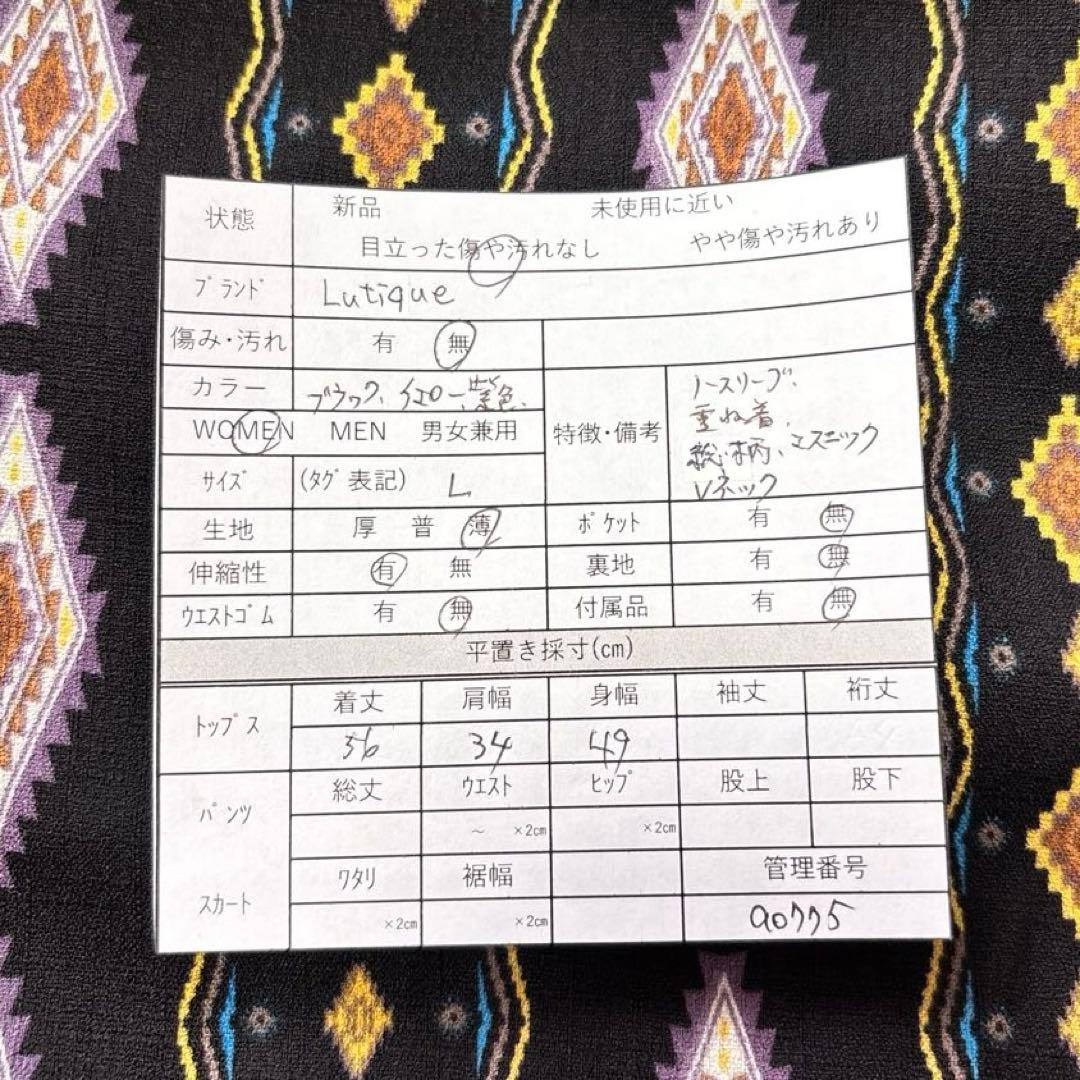 状態 新品 未使用に近い
目立った傷や汚れなし やや傷や汚れあり
ﾌﾞﾗﾝﾄﾞ Lutique
傷み・汚れ 有 無
カラー ブラック、イエロー、紫色、
WOMEN MEN 男女兼用
特徴・備考 ノースリーブ、
重ね着、
総柄、エスニック
Vネック
ｻｲｽﾞ (ﾀｸﾞ表記) L
生地 厚 普 薄 ﾎﾟｹｯﾄ 有 無
伸縮性 有 無 裏地 有 無
ｳｴｽﾄｺﾞﾑ 有 無 付属品 有 無
平置き採寸(cm)
ﾄｯﾌﾟｽ 着丈 肩幅 身幅 袖丈 裄丈
56 34 49
ﾊﾟﾝﾂ 総丈 ｳｴｽﾄ ﾋｯﾌﾟ 股上 股下
～ ×2cm ×2cm
ｽｶｰﾄ ﾜﾀﾘ 裾幅 管理番号
×2cm ×2cm a0775